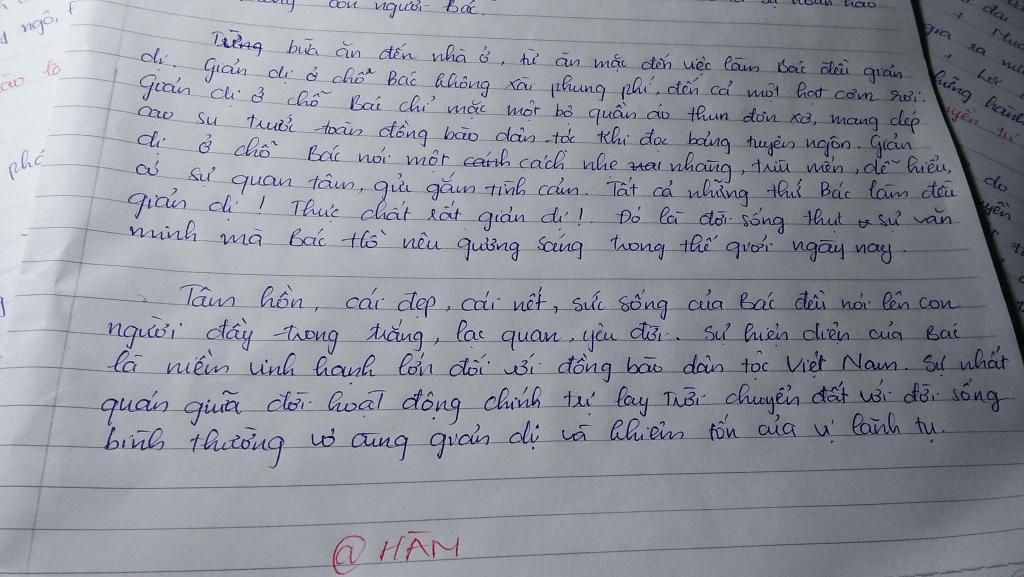 con người Bác.
Từng bữa ăn đến nhà ở, từ ăn mặc đến việc làm Bác đều giản
dị. Giản dị ở chỗ Bác không xài phung phí, đến cả một hạt cơm rơi.
Giản dị ở chỗ Bác chỉ mặc một bộ quần áo thun đơn xơ, mang dép
cao su trước toàn đồng bào dân tộc khi đọc bảng tuyên ngôn. Giản
dị ở chỗ Bác nói một cánh cách nhẹ nhàng, trìu mến, dễ hiểu,
có sự quan tâm, gửi gắm tình cảm. Tất cả những thứ Bác làm đều
giản dị! Thực chất rất giản dị!. Đó là đời sống thực sự văn
minh mà Bác Hồ nêu gương sáng trong thế giới ngày nay.
Tâm hồn, cái đẹp, cái nết, sức sống của Bác đều nói lên con
người đầy trong trắng, lạc quan, yêu đời. Sự hiện diện của Bác
là niềm vinh hạnh lớn đối với đồng bào dân tộc Việt Nam. Sự nhất
quán giữa đời hoạt động chính trị lay trời chuyển đất với đời sống
bình thường vô cùng giản dị và khiêm tốn của vị lãnh tụ.
@ HÂM